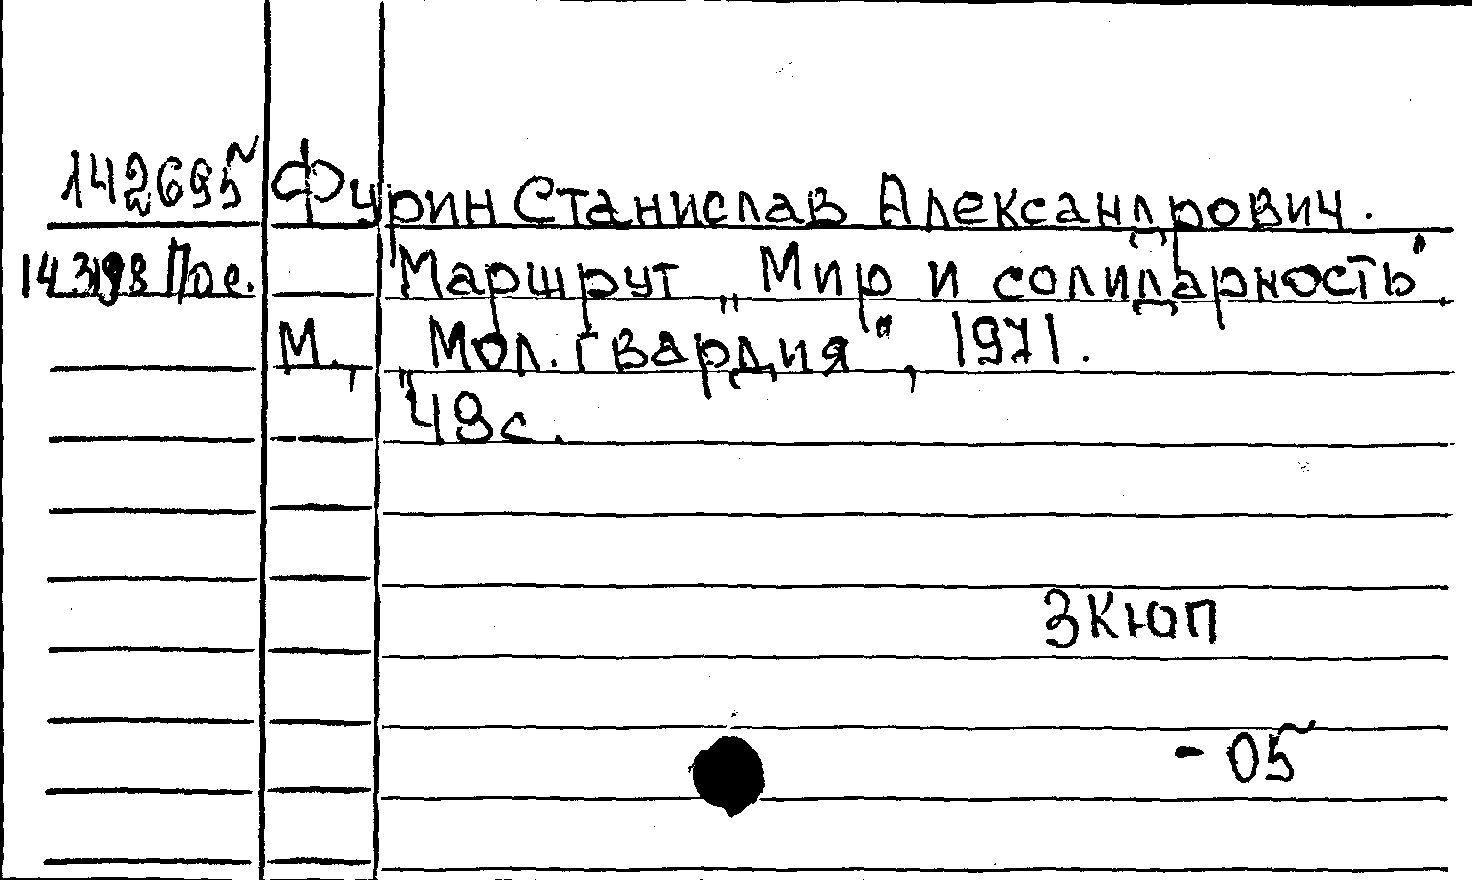 142695 Фурин Станислав Александрович.
Маршрут „Мир и солидарность".
М., „Мол. гвардия", 1971.
49 с.
3КЮП
- 05